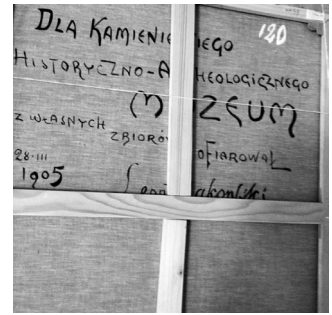 120
DLA KAMIENIE IEGO
HISTORYCZNO-A HEOLOGICZNEGO
M ZEUM
Z WŁASNYCH ZBIORÓ OFIAROWAŁ
28·III
1905